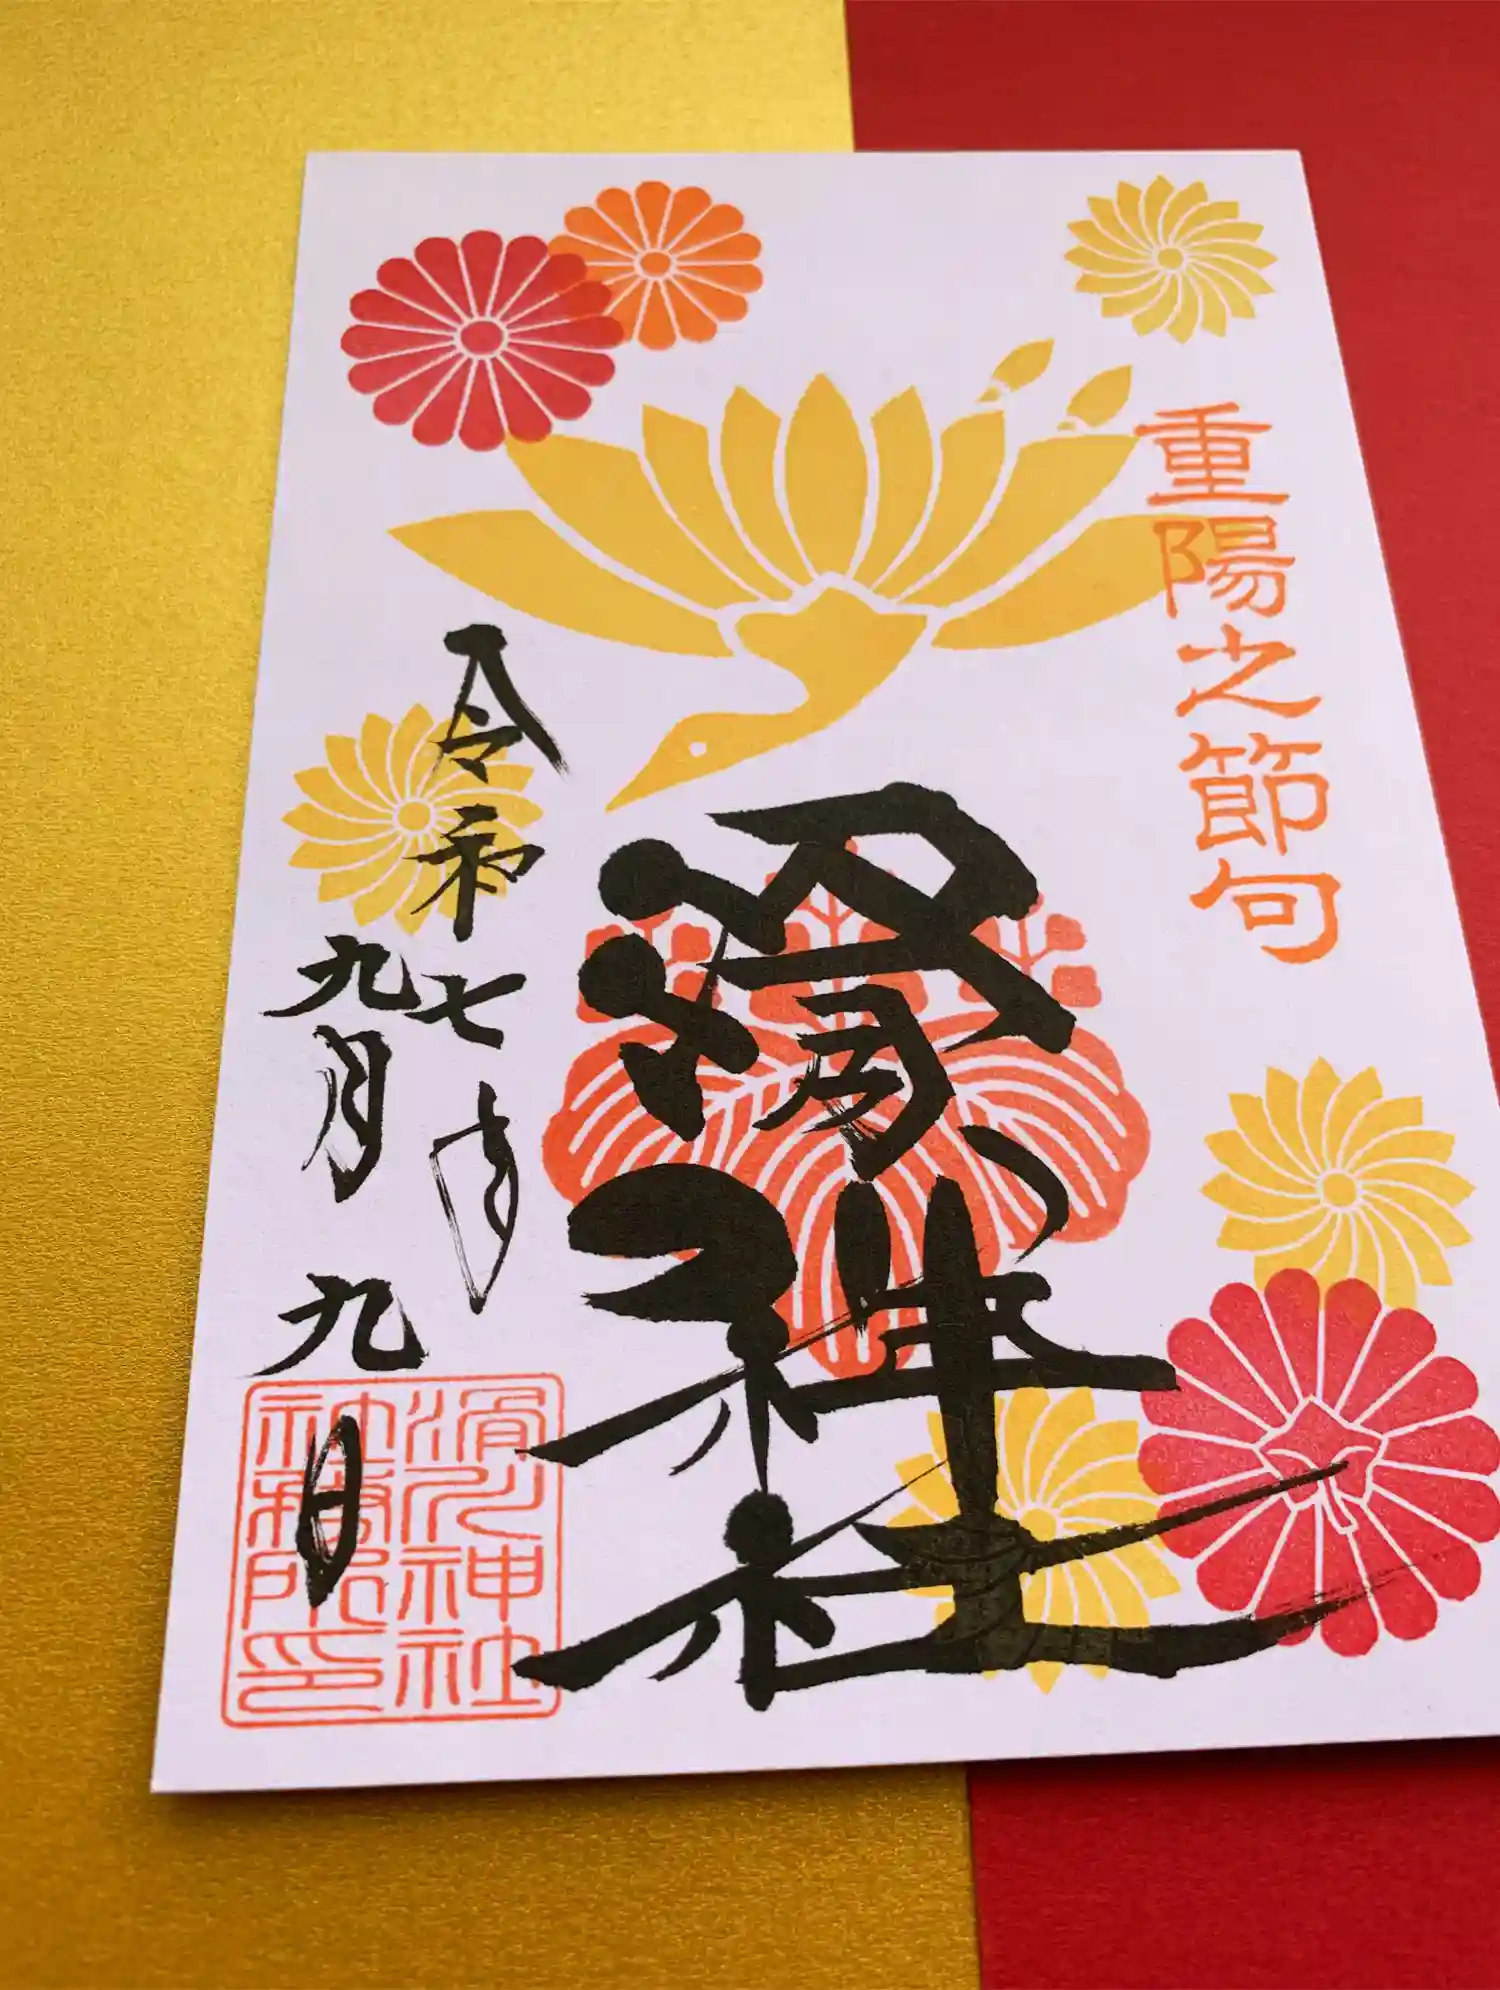 重陽之節句
滑川神社
令和七年
九月九日
滑川神社
社務所印